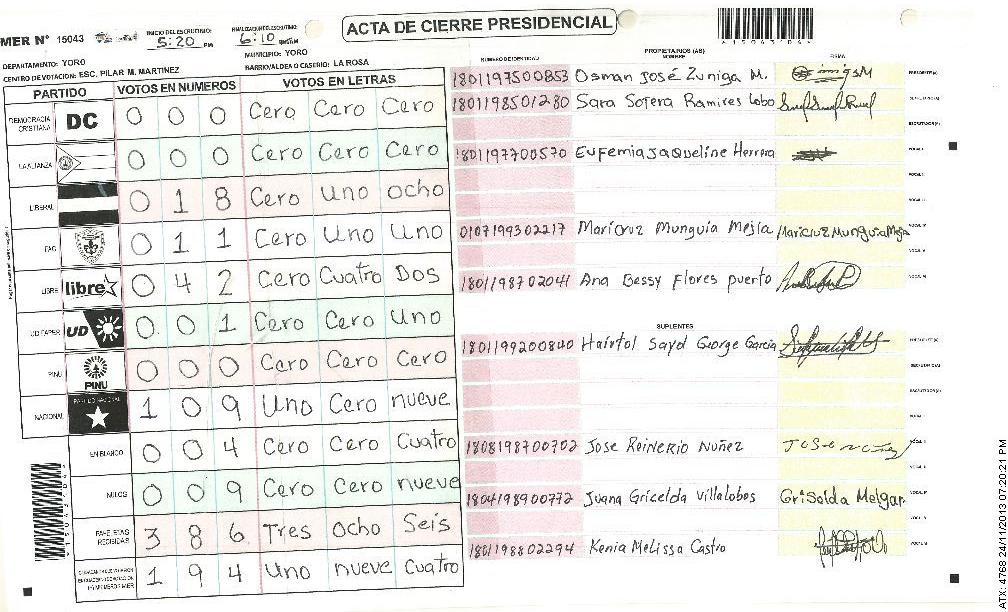 ACTA DE CIERRE PRESIDENCIAL
MER N° 15043
INICIO DEL ESCRUTINIO: 5:20 PM
FINALIZACION ESCRUTINIO: 6:10
DEPARTAMENTO: YORO
MUNICIPIO: YORO
CENTRO DE VOTACION: ESC. PILAR M. MARTINEZ
BARRIO/ALDEA O CASERIO: LA ROSA
PARTIDO VOTOS EN NUMEROS VOTOS EN LETRAS
DEMOCRACIA CRISTIANA DC 0 0 0 Cero Cero Cero
LA ALIANZA 0 0 0 Cero Cero Cero
LIBERAL 0 1 8 Cero Uno ocho
PAC 0 1 1 Cero Uno Uno
LIBRE libre 0 4 2 Cero Cuatro Dos
UD FAPER UD 0 0 1 Cero Cero Uno
PINU PINU 0 0 0 Cero Cero Cero
NACIONAL PARTIDO NACIONAL 1 0 9 Uno Cero nueve
EN BLANCO 0 0 4 Cero Cero Cuatro
NULOS 0 0 9 Cero Cero nueve
PAPELETAS RECIBIDAS 3 8 6 Tres ocho Seis
1 9 4 Uno nueve Cuatro
NUMERO DE IDENTIDAD
PROPIETARIOS (AS)
NOMBRE
FIRMA
1801197500853 Osman José Zuniga M.
1801198501280 Sara Sotera Ramires Lobo
1801197700570 Eufemia Jaqueline Herrera
0107199302217 Maricruz Munguia Mejia Maricruz Munguia Mejia
1801198702041 Ana Bessy Flores puerto
SUPLENTES
1801199200840 Hairtol Sayd George Garcia
1808198700702 Jose Reinerio Nuñez Jose nuñez
1804198900772 Juana Gricelda Villalobos Grisolda Melgar
1801198802294 Kenia Melissa Castro
ATX: 4768 24/11/2013 07:20:21 PM